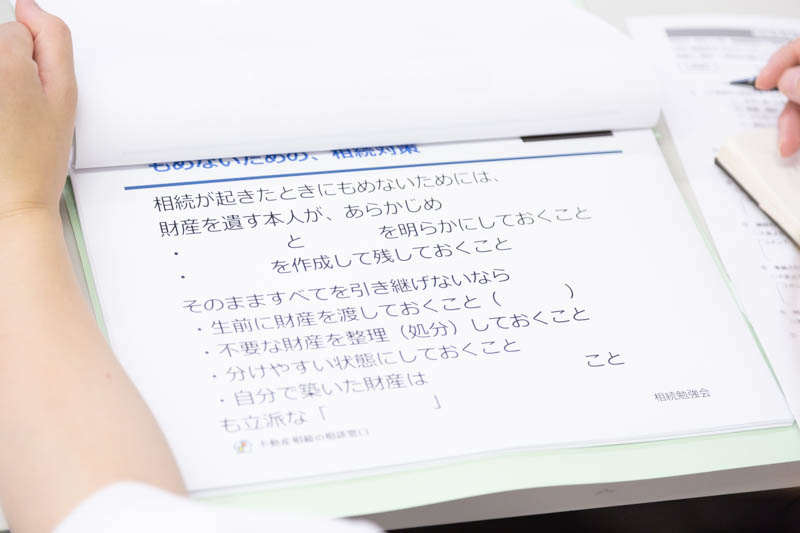 もめないための、相続対策
相続が起きたときにもめないためには、
財産を遺す本人が、あらかじめ
・　　　　　と　　　　を明らかにしておくこと
・　　　　　を作成して残しておくこと
そのまますべてを引き継げないなら
・生前に財産を渡しておくこと（　　　　）
・不要な財産を整理（処分）しておくこと
・分けやすい状態にしておくこと
・自分で築いた財産は　　　　　　　　　こと
も立派な「　　　　　　」
相続勉強会
不動産相続の相談窓口